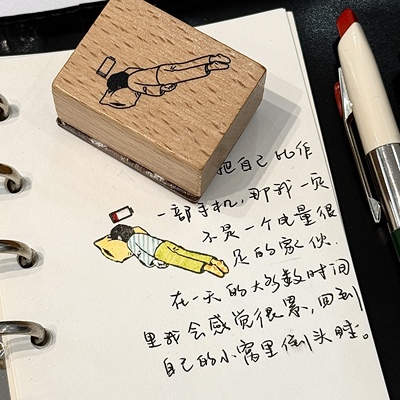 把自己比作
一部手机，那我一定
不是一个电量很
足的家伙.
在一天的大多数时间
里我会感觉很累，回到
自己的小窝里倒头睡。